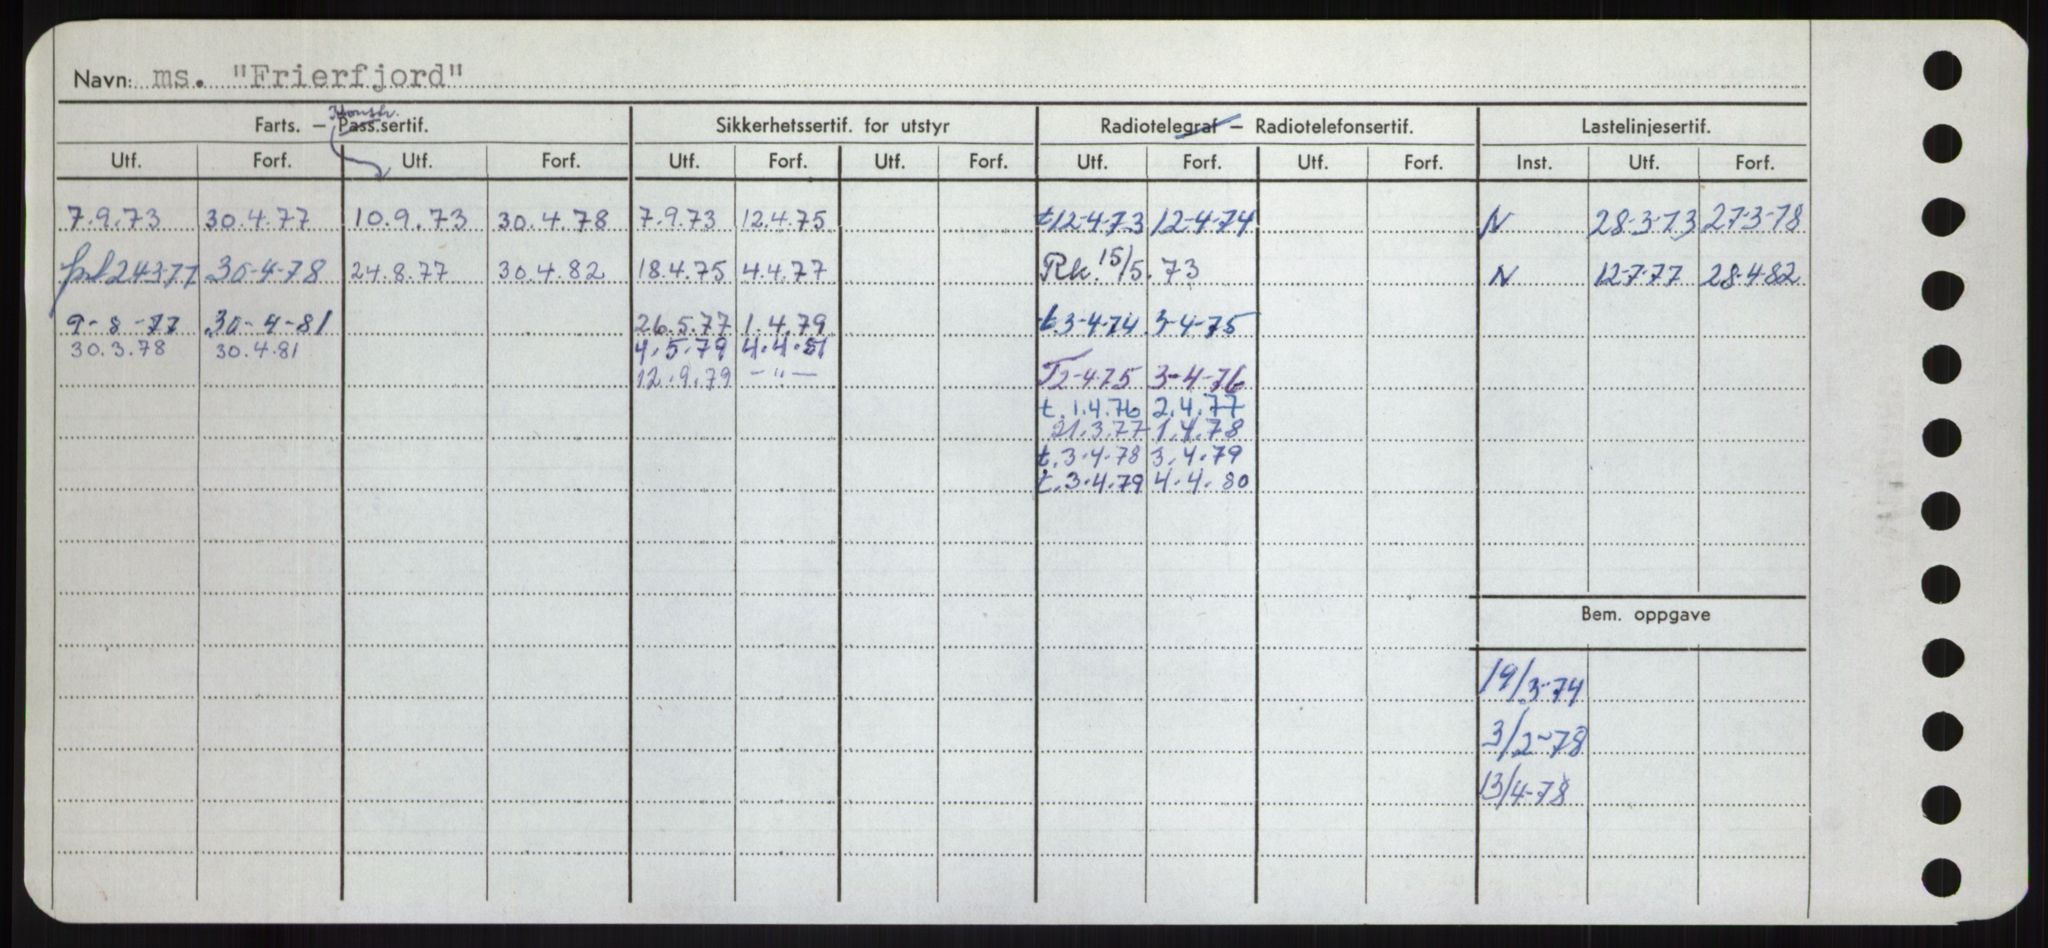 Navn: ms. "Frierfjord"
Konstr.
Farts. – Pass.sertif. Sikkerhetssertif. for utstyr Radiotelegraf – Radiotelefonsertif. Lastelinjesertif.
Utf. Forf. Utf. Forf. Utf. Forf. Utf. Forf. Utf. Forf. Utf. Forf. Inst. Utf. Forf.
7.9.73 30.4.77 10.9.73 30.4.78 7.9.73 12.4.75 t12-4-73 12-4-74 N 28-3-73 27-3-78
24-3-77 30-4-78 24.8.77 30.4.82 18.4.75 4.4.77 Rk. 15/5.73 N 12-7-77 28-4-82
9-8-77 30-4-81 26.5.77 1.4.79 t.3-4-74 3-4-75
30.3.78 30.4.81 4.5.79 4.4.81
12.9.79 – " – T2-4-75 3-4-76
t.1.4.76 2.4.77
21.3.77 1.4.78
t.3.4.78 3.4.79
t.3.4.79 4.4.80
Bem. oppgave
19/3-74
3/2-78
13/4-78